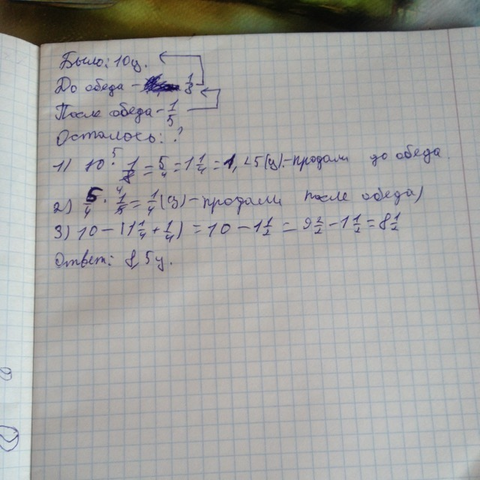 Было: 10ц.
До обеда - 1/8
После обеда - 1/5
Осталось: ?
1) 10 · 1/8 = 5/4 = 1 1/4 = 1,25 (ц) - продали до обеда.
2) 5/4 · 1/5 = 1/4 (ц) - продали после обеда)
3) 10 - (1 1/4 + 1/4) = 10 - 1 1/2 = 9 2/2 - 1 1/2 = 8 1/2
Ответ: 8,5 ц.